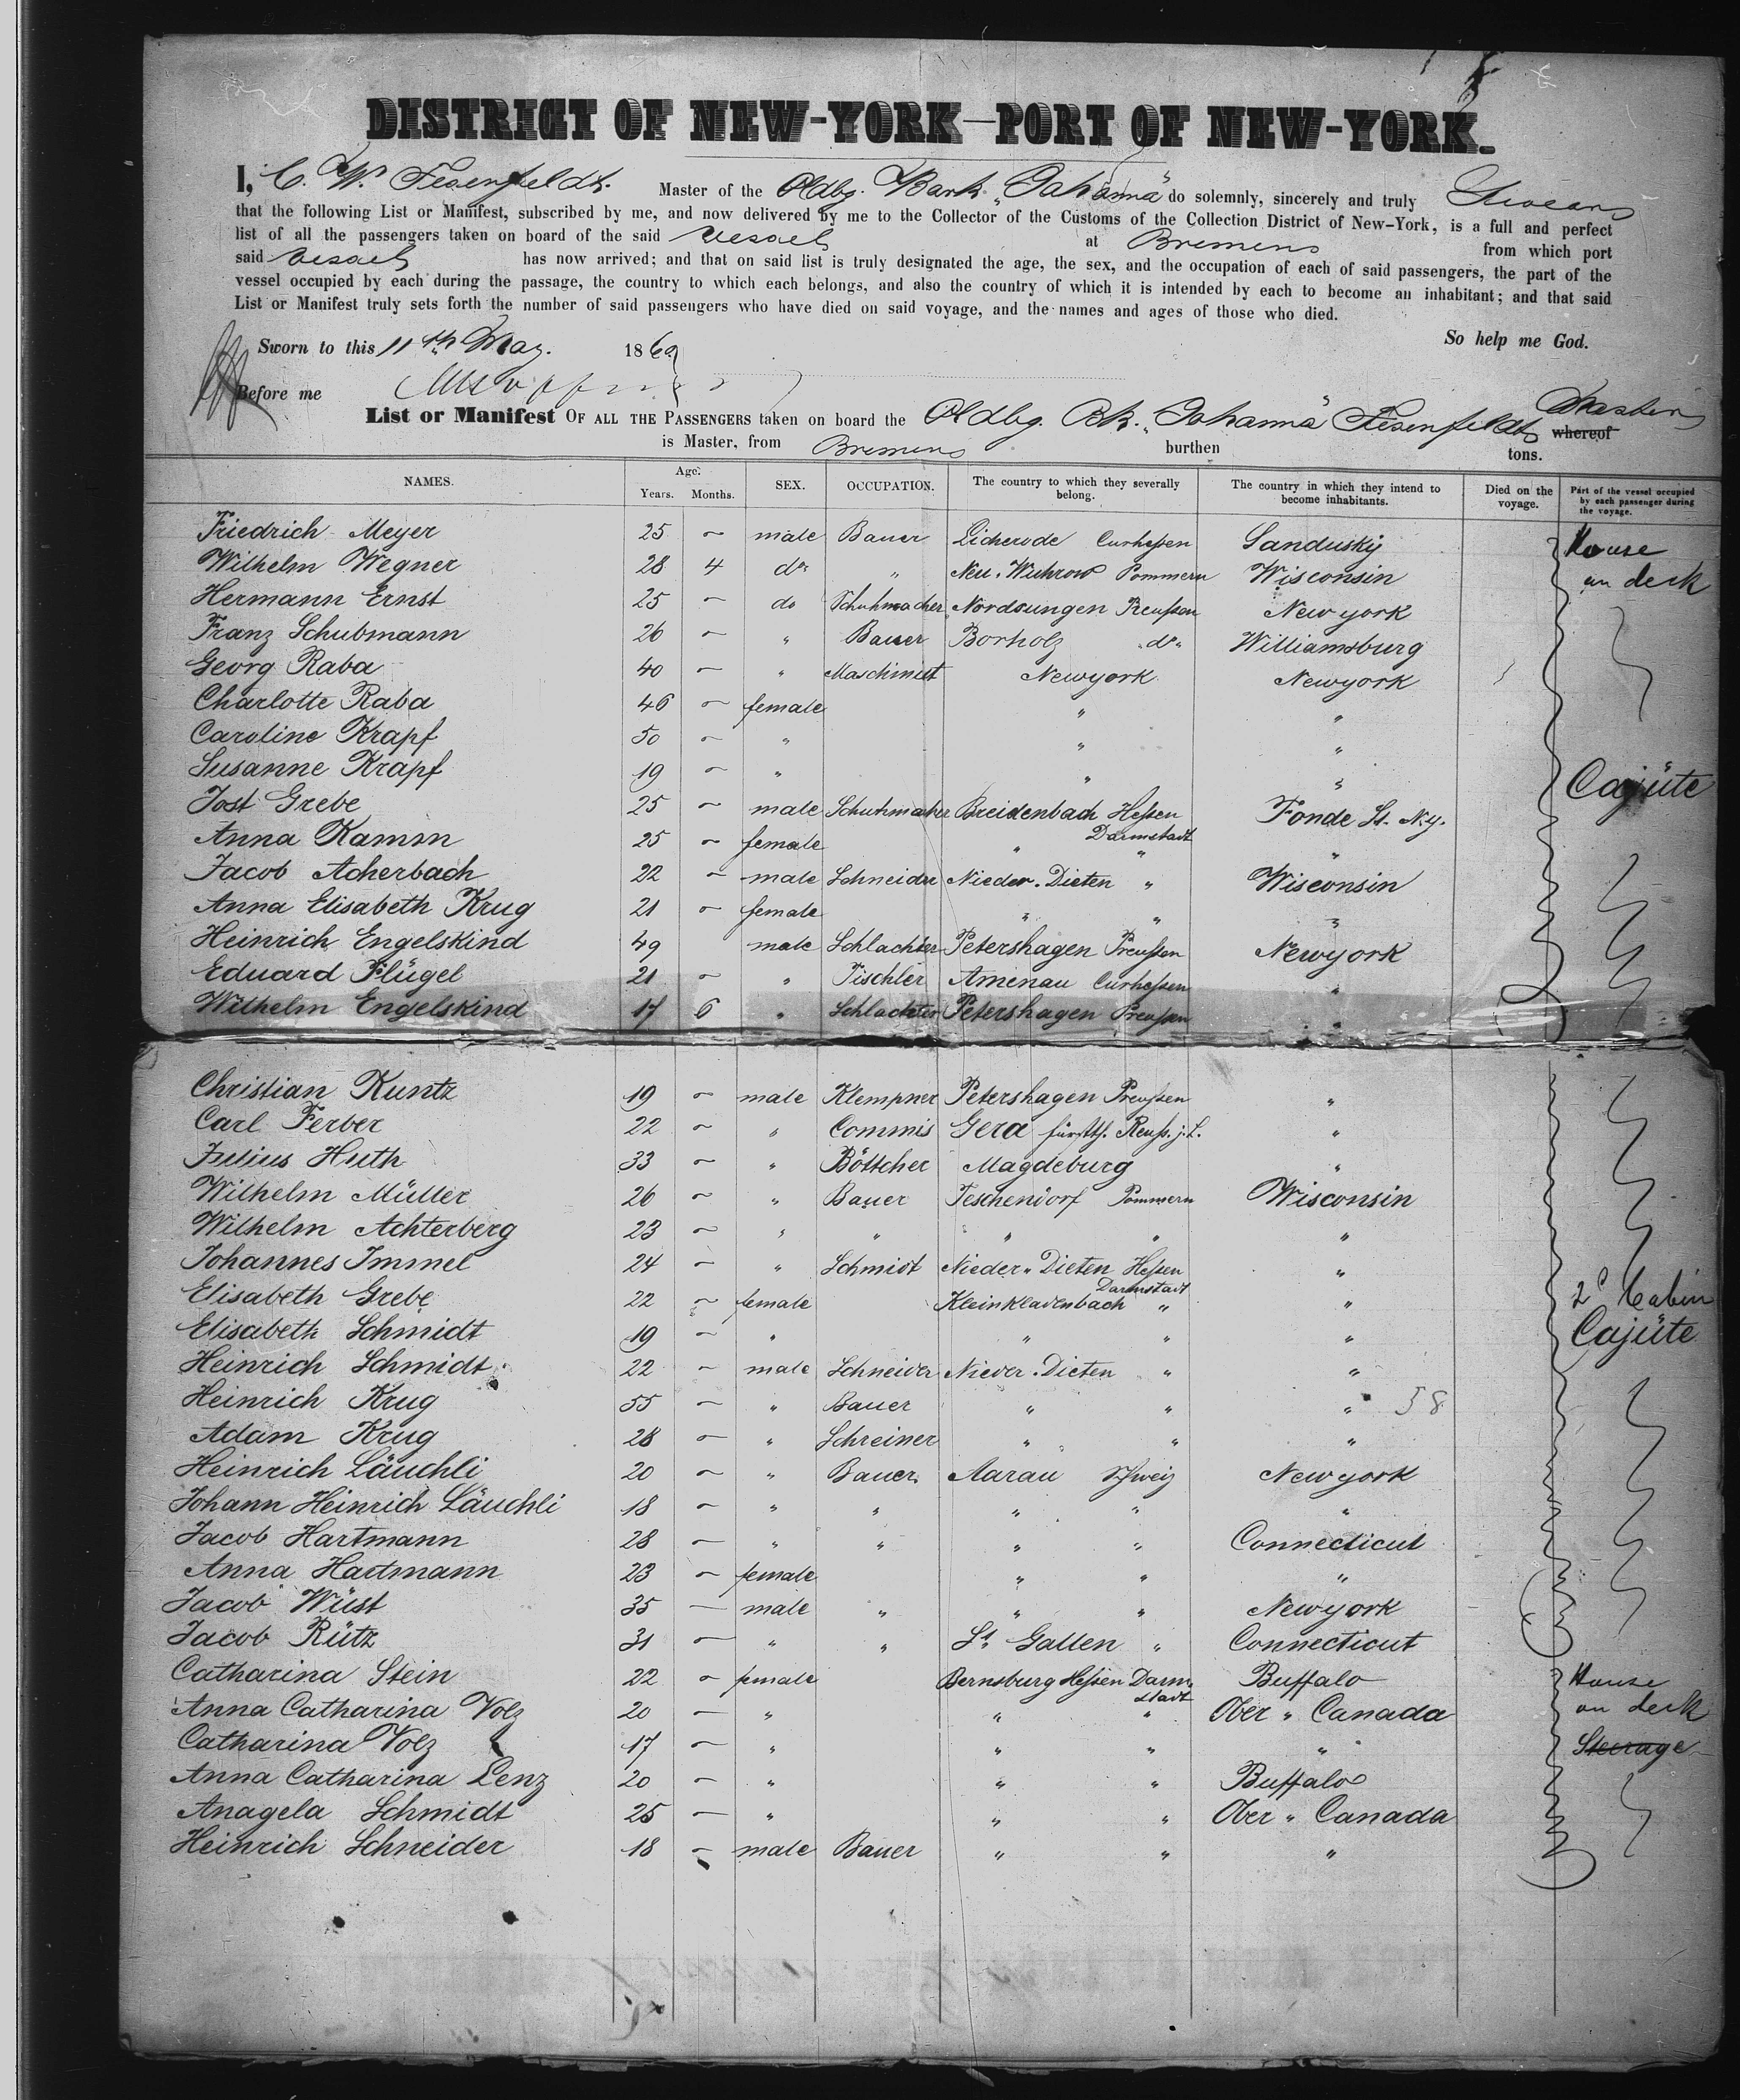 DISTRICT OF NEW-YORK—PORT OF NEW-YORK.
I, C. W. Fesenfeldt. Master of the Oldbg. Bark "Johanna" do solemnly, sincerely and truly Swear
that the following List or Manifest, subscribed by me, and now delivered by me to the Collector of the Customs of the Collection District of New-York, is a full and perfect
list of all the passengers taken on board of the said Vessel at Bremen from which port
said Vessel has now arrived; and that on said list is truly designated the age, the sex, and the occupation of each of said passengers, the part of the
vessel occupied by each during the passage, the country to which each belongs, and also the country of which it is intended by each to become an inhabitant; and that said
List or Manifest truly sets forth the number of said passengers who have died on said voyage, and the names and ages of those who died.
So help me God.
Sworn to this 11th May. 1860
Before me
List or Manifest OF ALL THE PASSENGERS taken on board the Oldbg. Bk. "Johanna" Fesenfeldt Master whereof
is Master, from Bremen burthen tons.
NAMES. Age. Years. Months. SEX. OCCUPATION. The country to which they severally belong. The country in which they intend to become inhabitants. Died on the voyage. Part of the vessel occupied by each passenger during the voyage.
Friedrich Meyer 25 - male Bauer Licherode Curhessen Sandusky House
Wilhelm Wegner 28 4 do " Neu-Wuhrow Pommern Wisconsin on deck
Hermann Ernst 25 - do Schuhmacher Nordsungen Preussen New york
Franz Schubmann 26 - " Bauer Borholz "do" Williamsburg
Georg Raba 40 - " Maschinist Newyork Newyork
Charlotte Raba 46 - female " "
Caroline Krapf 50 - " " "
Susanne Krapf 19 - " " " Cajüte
Jost Grebe 25 - male Schuhmaher Breidenbach Hessen Darmstadt Fonde St. N.y.
Anna Kamm 25 - female " " "
Jacob Acherbach 22 - male Schneider Nieder-Dieten " Wisconsin
Anna Elisabeth Krug 21 - female " " "
Heinrich Engelskind 49 male Schlachter Petershagen Preussen Newyork
Eduard Flügel 21 - " Tischler Amenau Curhessen "
Wilhelm Engelskind 17 6 " Schlachter Petershagen Preussen "
Christian Kuntz 19 - male Klempner Petershagen Preussen "
Carl Ferber 22 - " Commis Gera fürstth. Reuss. j. L. "
Julius Huth 33 - " Böttcher Magdeburg "
Wilhelm Müller 26 - " Bauer Teschendorf Pommern Wisconsin
Wilhelm Achterberg 23 - " " " " "
Johannes Immel 24 - " Schmidt Nieder-Dieten Hessen Darmstadt "
Elisabeth Grebe 22 - female Kleinkladenbach " " 2d Cabin
Elisabeth Schmidt 19 - " " " " Cajüte
Heinrich Schmidt 22 - male Schneider Nieder-Dieten " "
Heinrich Krug 55 - " Bauer " " " 58
Adam Krug 28 - " Schreiner " " "
Heinrich Läuchli 20 - " Bauer Aarau Schweiz Newyork
Johann Heinrich Läuchli 18 - " " " " "
Jacob Hartmann 28 - " " " " Connecticut
Anna Hartmann 23 - female " " "
Jacob Wüst 35 - male " " " Newyork
Jacob Rütz 31 - " " St. Gallen " Connecticut
Catharina Stein 22 - female Bernsburg Hessen Darmstadt Buffalo House
Anna Catharina Volz 20 - " " " Ober-Canada on deck
Catharina Volz 17 - " " " " Steerage
Anna Catharina Lenz 20 - " " " Buffalo
Anagela Schmidt 25 - " " " Ober-Canada
Heinrich Schneider 18 - male Bauer " " "